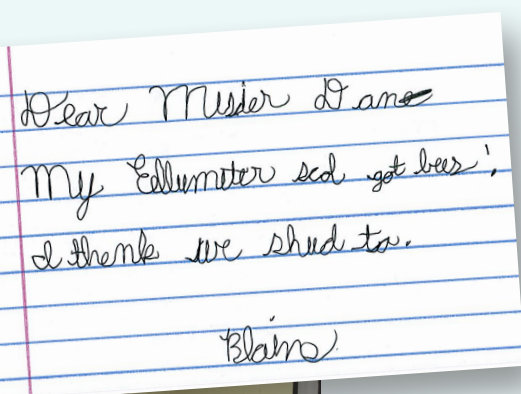 Dear Musder Dan
My Edlumuter scol got bees!
I thenk we shud to.
Blains